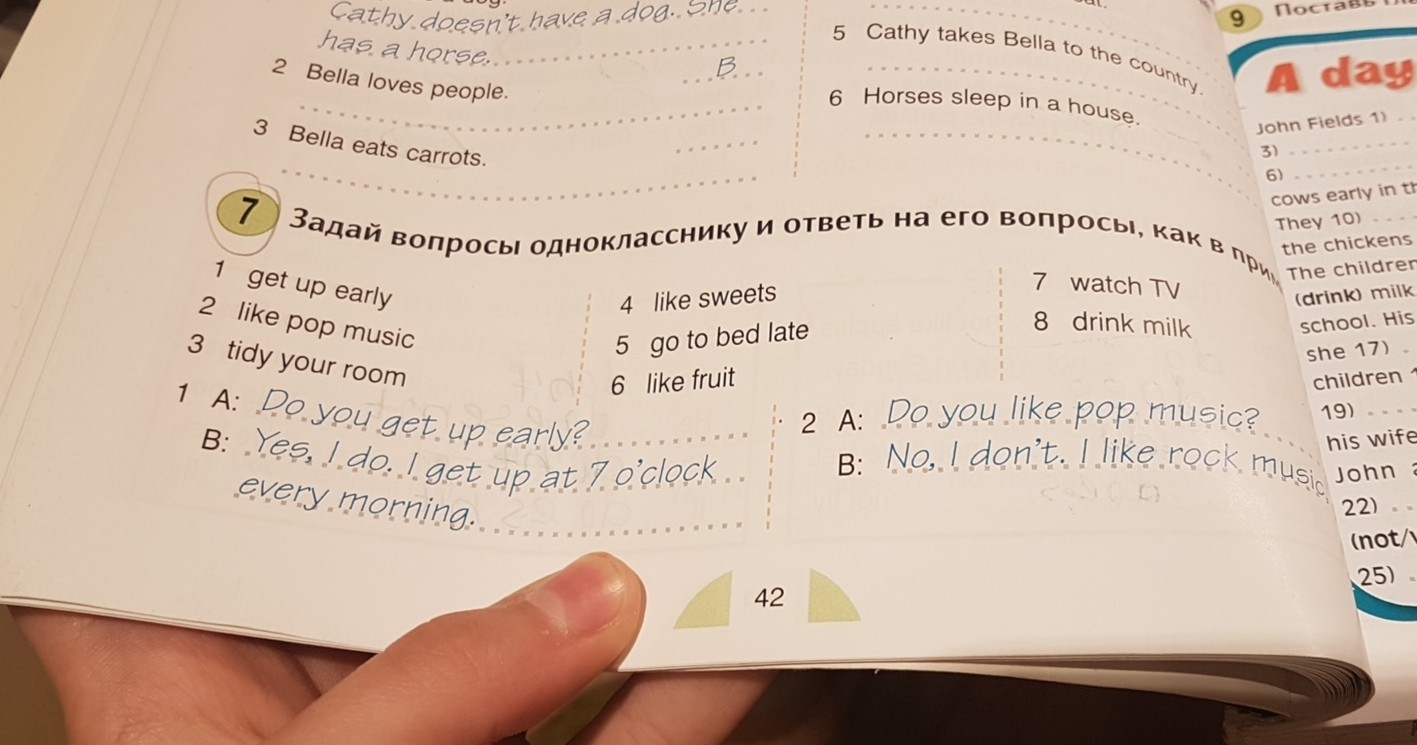 Cathy doesn't have a dog. She
has a horse.
2 Bella loves people. B
3 Bella eats carrots.
5 Cathy takes Bella to the country.
6 Horses sleep in a house.
7 Задай вопросы однокласснику и ответь на его вопросы, как в
1 get up early
2 like pop music
3 tidy your room
4 like sweets
5 go to bed late
6 like fruit
7 watch TV
8 drink milk
1 A: Do you get up early?
B: Yes, I do. I get up at 7 o'clock
every morning.
2 A: Do you like pop music?
B: No, I don't. I like rock music.
42
9
A day
John Fields 1)
3)
6)
cows early in
They 10)
the chickens
The children
(drink) milk
school. His
she 17)
children
19)
his wife
John
22)
(not/
25)